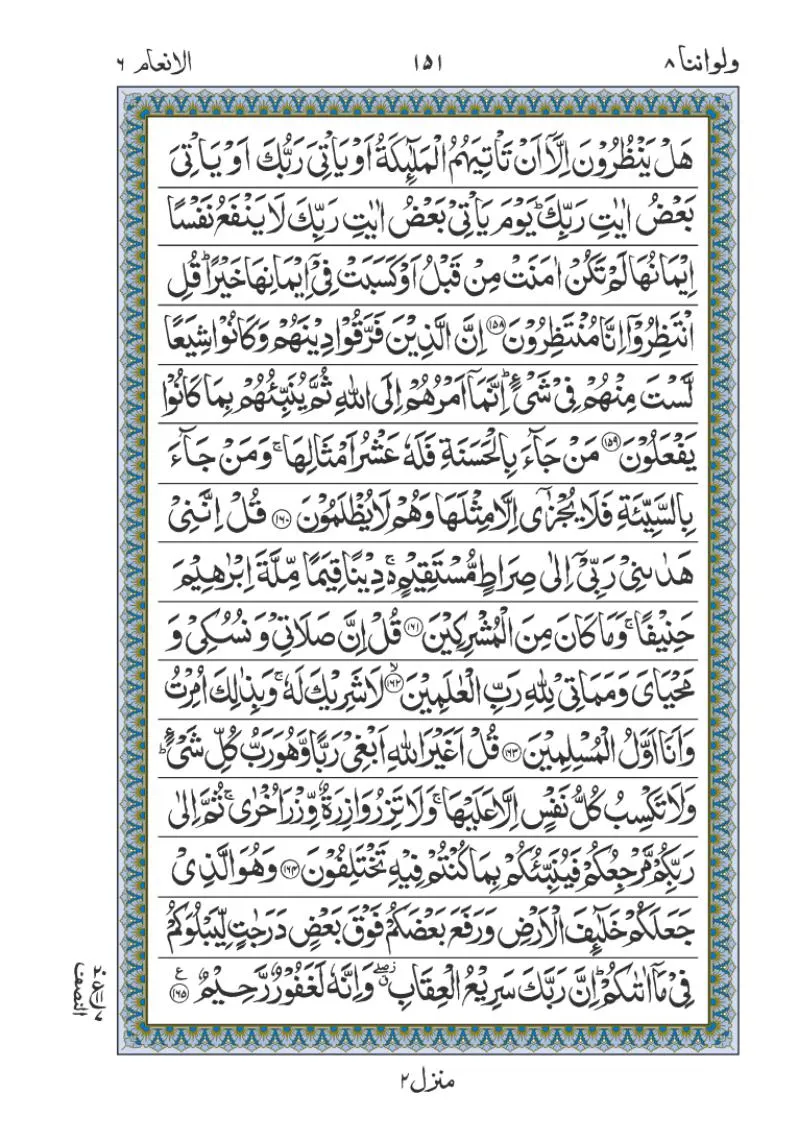 ولواننا ٨ ١٥١ الانعام ٦
هَلْ يَنْظُرُوْنَ اِلَّاۤ اَنْ تَاْتِيَهُمُ الْمَلٰٓئِكَةُ اَوْ يَاْتِىَ رَبُّكَ اَوْ يَاْتِىَ
بَعْضُ اٰيٰتِ رَبِّكَ ؕ يَوْمَ يَاْتِىْ بَعْضُ اٰيٰتِ رَبِّكَ لَا يَنْفَعُ نَفْسًا
اِيْمَانُهَا لَمْ تَكُنْ اٰمَنَتْ مِنْ قَبْلُ اَوْ كَسَبَتْ فِىْۤ اِيْمَانِهَا خَيْرًا ؕ قُلِ
انْتَظِرُوْۤا اِنَّا مُنْتَظِرُوْنَ ﴿١٥٨﴾ اِنَّ الَّذِيْنَ فَرَّقُوْا دِيْنَهُمْ وَكَانُوْا شِيَعًا
لَّسْتَ مِنْهُمْ فِىْ شَىْءٍ ؕ اِنَّمَاۤ اَمْرُهُمْ اِلَى اللّٰهِ ثُمَّ يُنَبِّئُهُمْ بِمَا كَانُوْا
يَفْعَلُوْنَ ﴿١٥٩﴾ مَنْ جَآءَ بِالْحَسَنَةِ فَلَهٗ عَشْرُ اَمْثَالِهَا ۚ وَمَنْ جَآءَ
بِالسَّيِّئَةِ فَلَا يُجْزٰٓى اِلَّا مِثْلَهَا وَهُمْ لَا يُظْلَمُوْنَ ﴿١٦٠﴾ قُلْ اِنَّنِىْ
هَدٰىنِىْ رَبِّىْۤ اِلٰى صِرَاطٍ مُّسْتَقِيْمٍ ۚ۬ دِيْنًا قِيَمًا مِّلَّةَ اِبْرٰهِيْمَ
حَنِيْفًا ۚ وَمَا كَانَ مِنَ الْمُشْرِكِيْنَ ﴿١٦١﴾ قُلْ اِنَّ صَلَاتِىْ وَنُسُكِىْ وَ
مَحْيَاىَ وَمَمَاتِىْ لِلّٰهِ رَبِّ الْعٰلَمِيْنَ ﴿١٦٢﴾ۙ لَا شَرِيْكَ لَهٗ ۚ وَبِذٰلِكَ اُمِرْتُ
وَاَنَا اَوَّلُ الْمُسْلِمِيْنَ ﴿١٦٣﴾ قُلْ اَغَيْرَ اللّٰهِ اَبْغِىْ رَبًّا وَّهُوَ رَبُّ كُلِّ شَىْءٍ ؕ
وَلَا تَكْسِبُ كُلُّ نَفْسٍ اِلَّا عَلَيْهَا ۚ وَلَا تَزِرُ وَازِرَةٌ وِّزْرَ اُخْرٰى ۚ ثُمَّ اِلٰى
رَبِّكُمْ مَّرْجِعُكُمْ فَيُنَبِّئُكُمْ بِمَا كُنْتُمْ فِيْهِ تَخْتَلِفُوْنَ ﴿١٦٤﴾ وَهُوَ الَّذِىْ
جَعَلَكُمْ خَلٰٓئِفَ الْاَرْضِ وَرَفَعَ بَعْضَكُمْ فَوْقَ بَعْضٍ دَرَجٰتٍ لِّيَبْلُوَكُمْ
فِىْ مَاۤ اٰتٰٮكُمْ ؕ اِنَّ رَبَّكَ سَرِيْعُ الْعِقَابِ ۖ وَاِنَّهٗ لَغَفُوْرٌ رَّحِيْمٌ ﴿١٦٥﴾ ع
النصف
منزل ٢